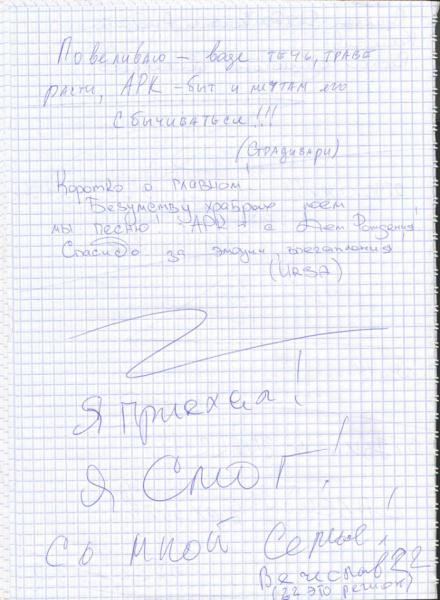 Повелеваю - воде течь, траве
расти, АРК - быт и мечтам его
Сбычиваться!!!
(Страдивари)
Коротко о главном!
Безумству храбрых поем
мы песню! АРК - с Днем Рождения!
Спасибо за эмоции,
(URSA)
Я приехал!
Я Смог!
Со мной Семья!
Вячеслав 22
(22 это регион)